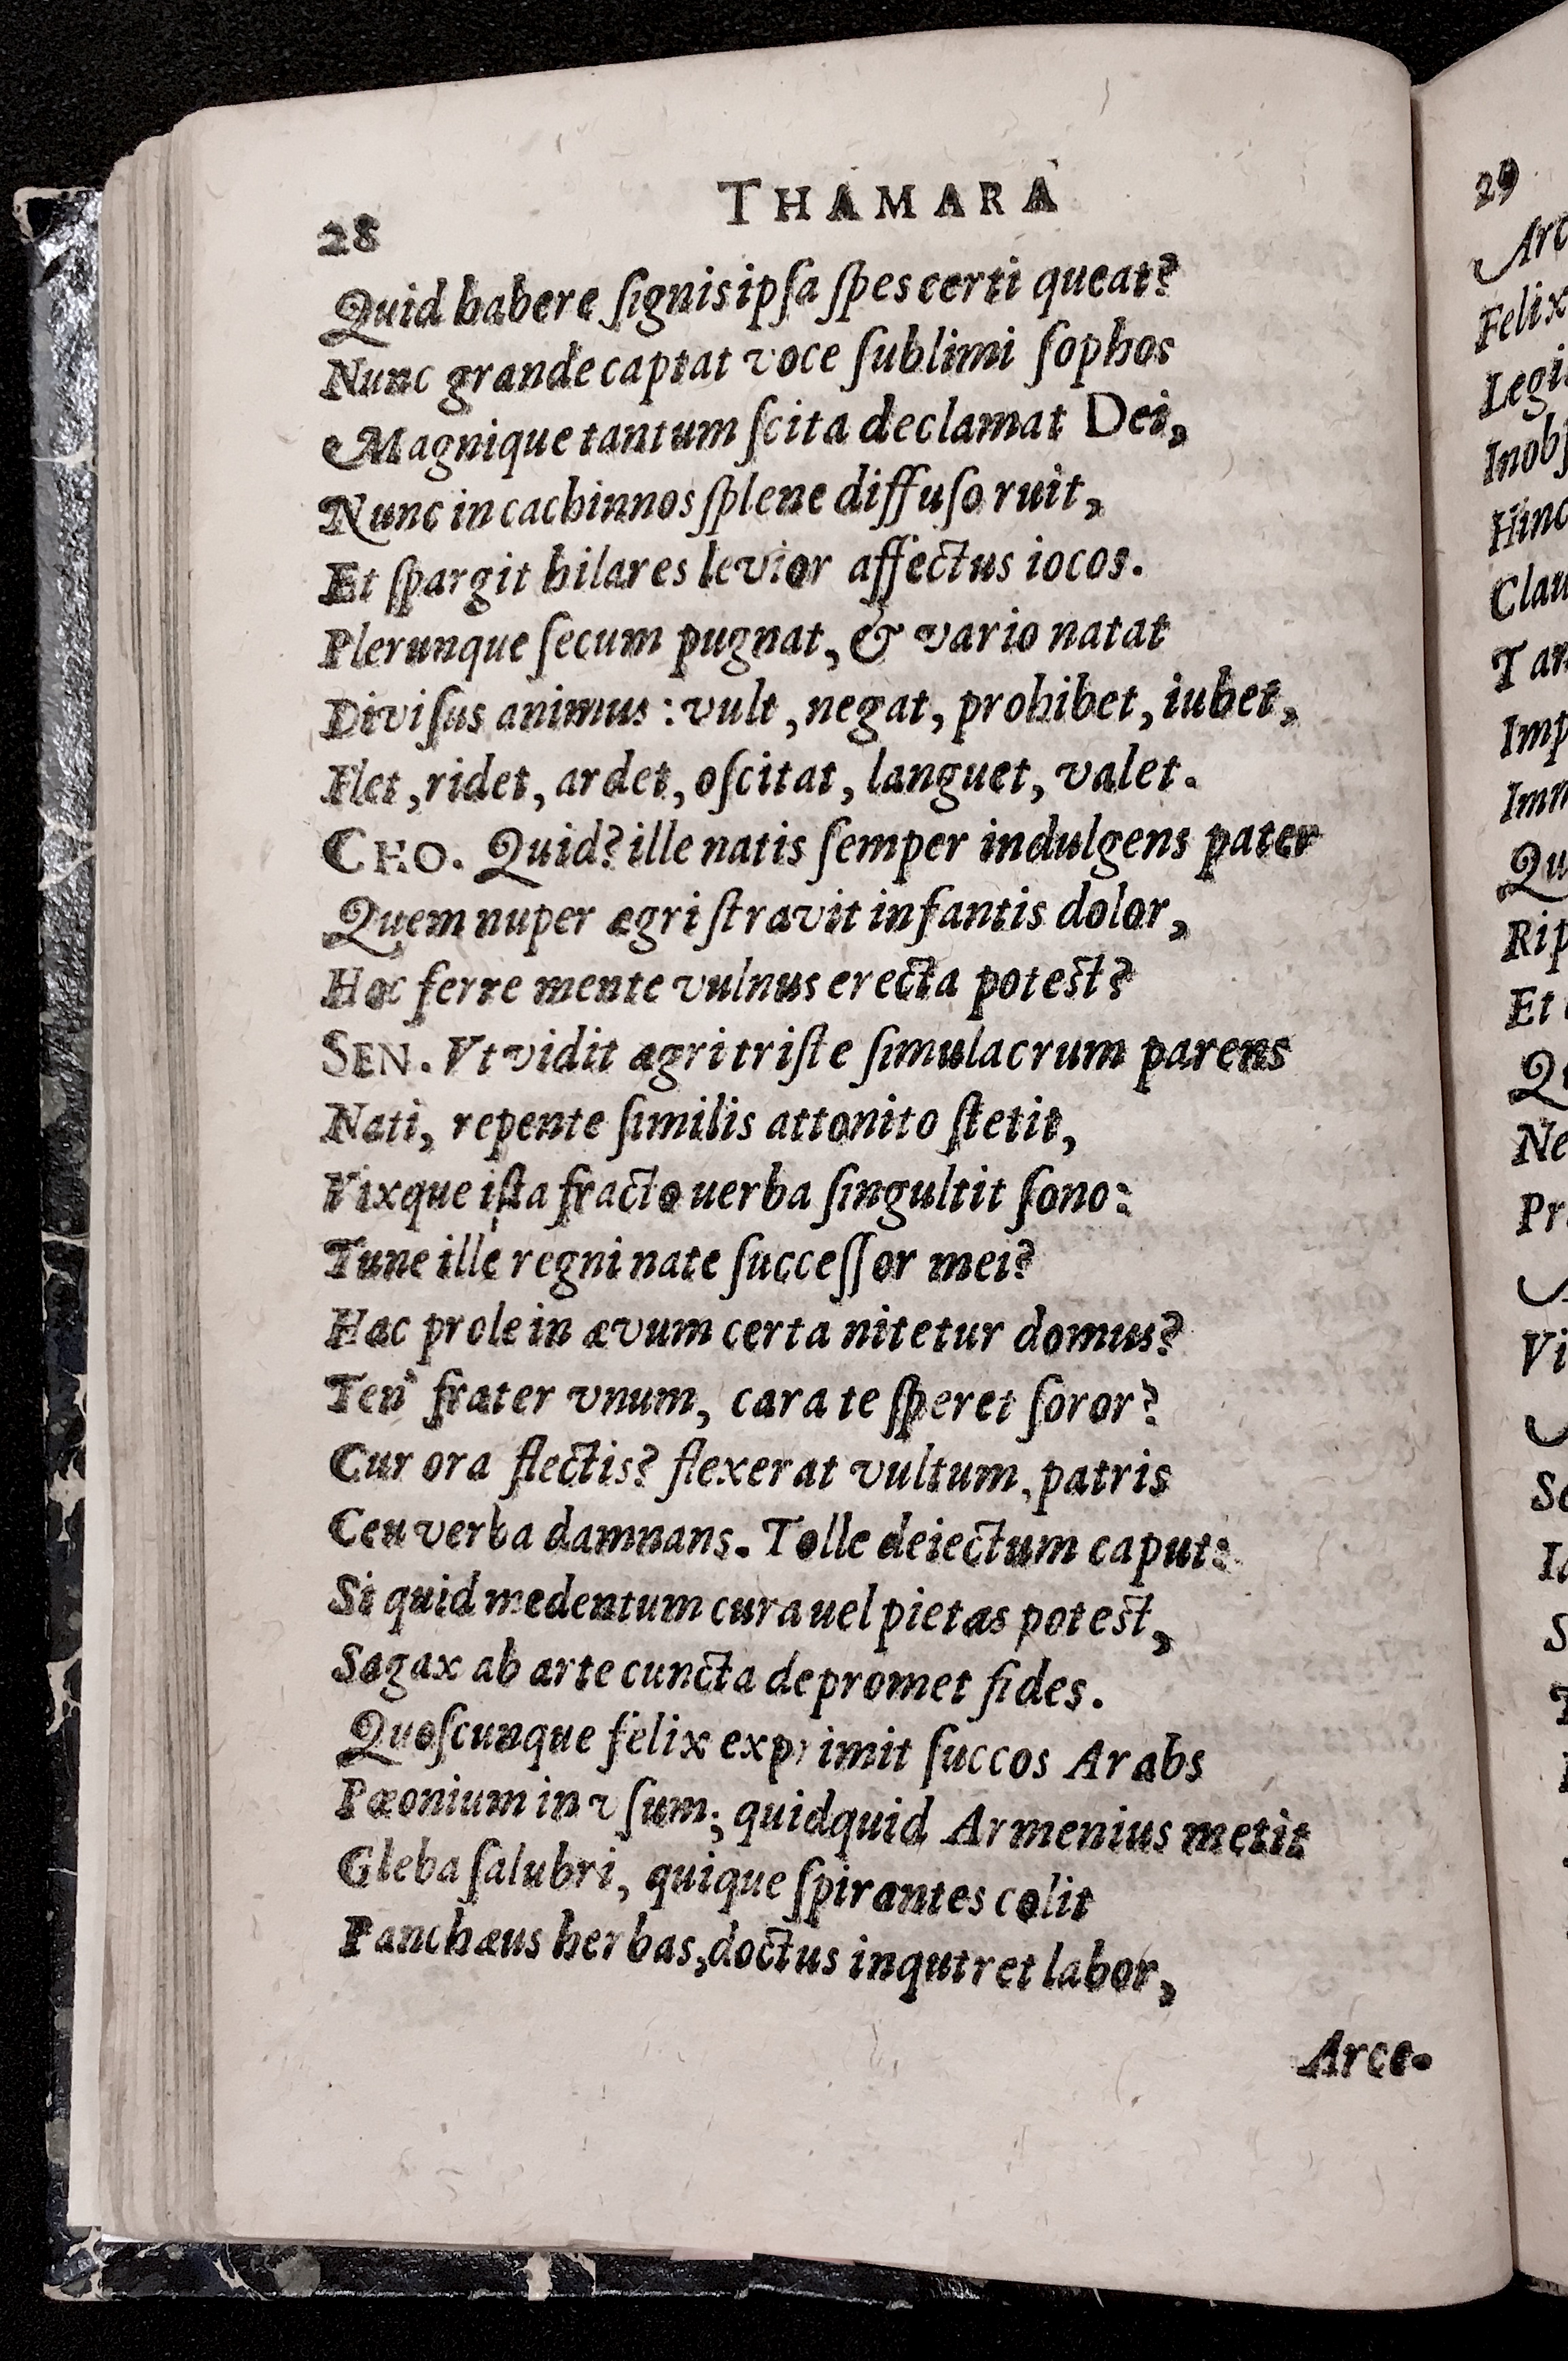 28
THAMARA
Quid habere ſignis ipſa ſpes certi queat?
Nunc grande captat voce ſublimi ſophos
Magnique tantum ſcita declamat Dei,
Nunc in cachinnos ſplene diffuſo ruit,
Et ſpargit hilares levior affectus iocos.
Plerunque ſecum pugnat, & vario natat
Diviſus animus: vult, negat, prohibet, iubet,
Flet, ridet, ardet, oſcitat, languet, valet.
CHO. Quid? ille natis ſemper indulgens pater
Quem nuper ægri ſtravit infantis dolor,
Hoc ferre mente vulnus erecta potest?
SEN. Vt vidit ægri triſte ſimulacrum parens
Nati, repente ſimilis attonito ſtetit,
Vixque iſta fracto uerba ſingultit ſono:
Tune ille regni nate ſucceſſor mei?
Hac prole in ævum certa nitetur domus?
Ten' frater vnum, cara te ſperet ſoror?
Cur ora flectis? flexerat vultum, patris
Ceu verba damnans. Tolle deiectum caput:
Si quid medentum cura uel pietas potest,
Sagax ab arte cuncta depromet fides.
Quoſcunque felix exprimit ſuccos Arabs
Pæonium in vſum; quidquid Armenius metit
Gleba ſalubri, quique ſpirantes colit
Panchæus herbas, doctus inqutret labor,
Arce-
29
Felix
Legi
Hinc
Clau
Imp
Qu
Rip
Et
Ne
Pr
Vi